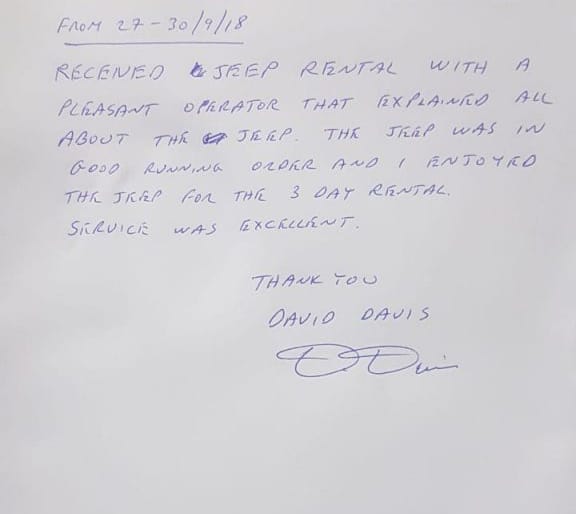 FROM 27-30/9/18
RECEIVED JEEP RENTAL WITH A
PLEASANT OPERATOR THAT EXPLAINED ALL
ABOUT THE JEEP. THE JEEP WAS IN
GOOD RUNNING ORDER AND I ENJOYED
THE JEEP FOR THE 3 DAY RENTAL.
SERVICE WAS EXCELLENT.
THANK YOU
DAVID DAVIS
D. Davis